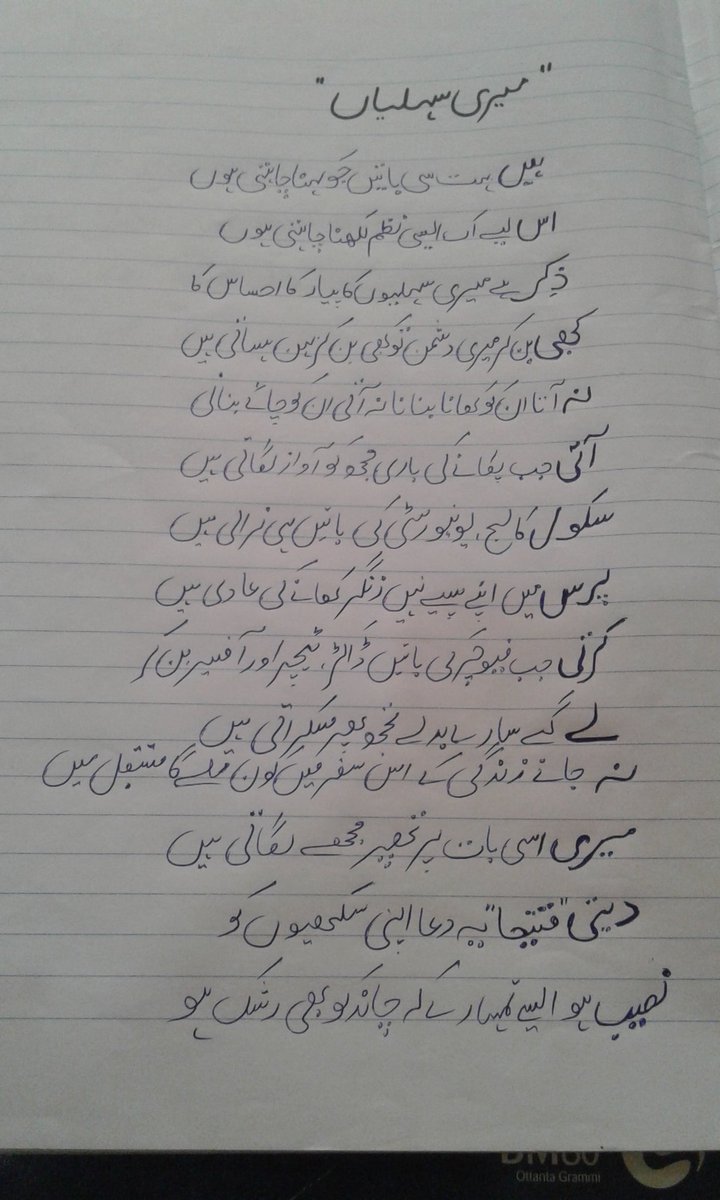 "میری سہلیاں"
ہیں بہت سی باتیں جو کہنا چاہتی ہوں
اس لیے اک ایسی نظم لکھنا چاہتی ہوں
ذکر ہے میری سہلیوں کا پیار کا احساس کا
کبھی بن کر میری دشمن تو کبھی بن کر بہن ہسانی ہیں
نہ آتا ان کو کھانا بنانا نہ آئی ان کو چائے بنانی
آئی جب پکانے کی باری مجھ کو آواز لگاتی ہیں
سکول کالج، یونیورسٹی کی باتیں ہی نرالی ہیں
پرس میں اپنے پیسے نہیں لنگر کھانے کی عادی ہیں
کرتی جب فیوچر کی باتیں ڈاکٹر، ٹیچر اور آفیسر بن کر
لے گے سارے بدلے مجھ پھر مسکراتی ہیں
نہ جانے زندگی کے اس سفر میں کون ملے گا مستقبل میں
میری اسی بات پر تھپڑ مجھے لگاتی ہیں
دیتی یہ دعا اپنی سکھیوں کو
نصیب ہو ایسے تمہارے کہ چاند کو بھی رشک ہو
BM60
Ottanta Grammi